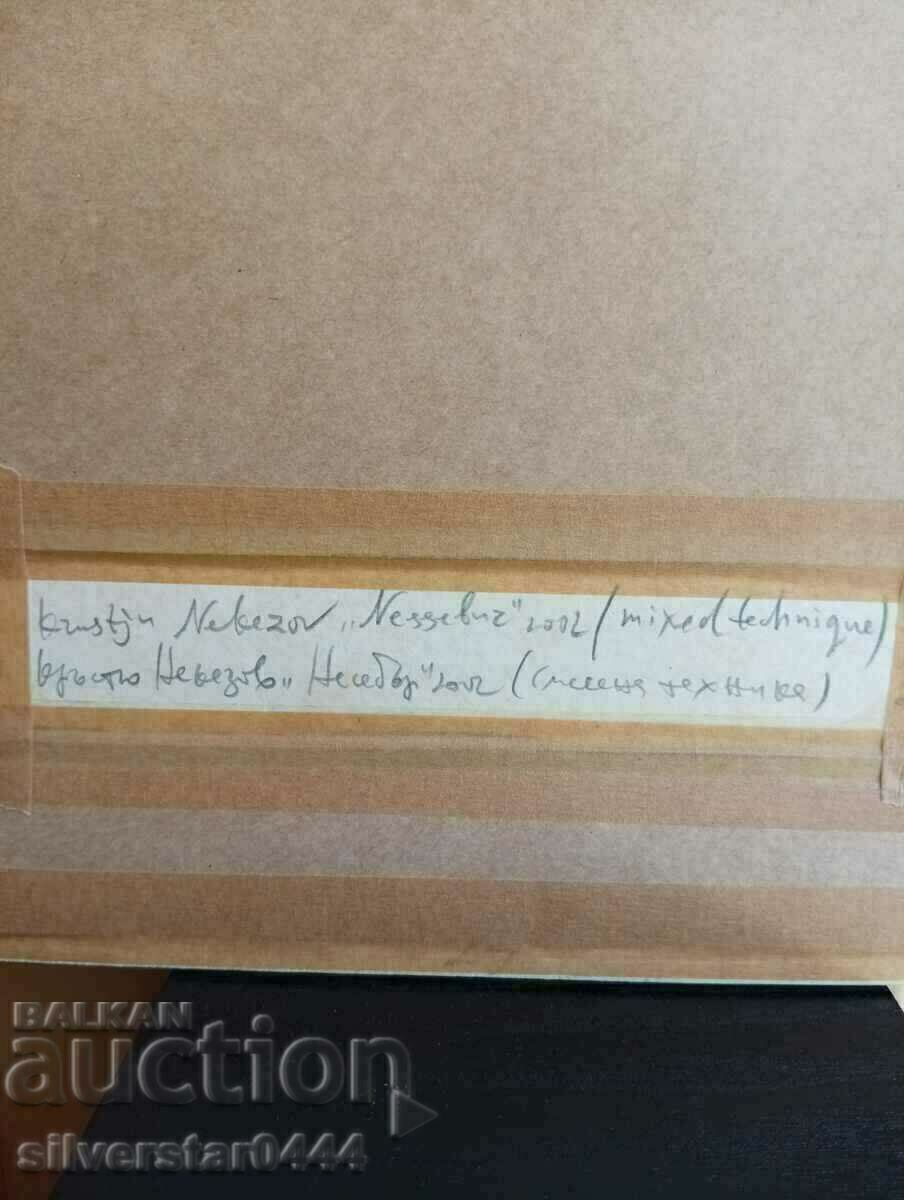 Krustju Nekezov „Nessebur" 2002 (mixed technique)
Кръстю Некезов „Несебър" 2002 (смесена техника)
BALKAN
auction
silverstar0444